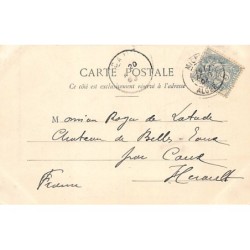 CARTE POSTALE
Ce côté est exclusivement réservé à l'adresse
20
Monsieur Roger de Latude
Chateau de Belles Eaux
par Caux
Herault
France